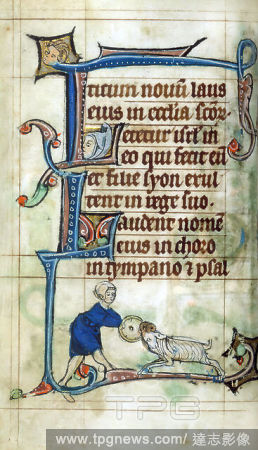 ticum novū laus
eius in ecclīa scōr.
Letetur isrl in
eo qui fecit eū
et filie syon exul
tent in rege suo.
Laudent nomē
eius in choro
in tympano ⁊ psal
TPG
www.tpgnews.com/達志影像